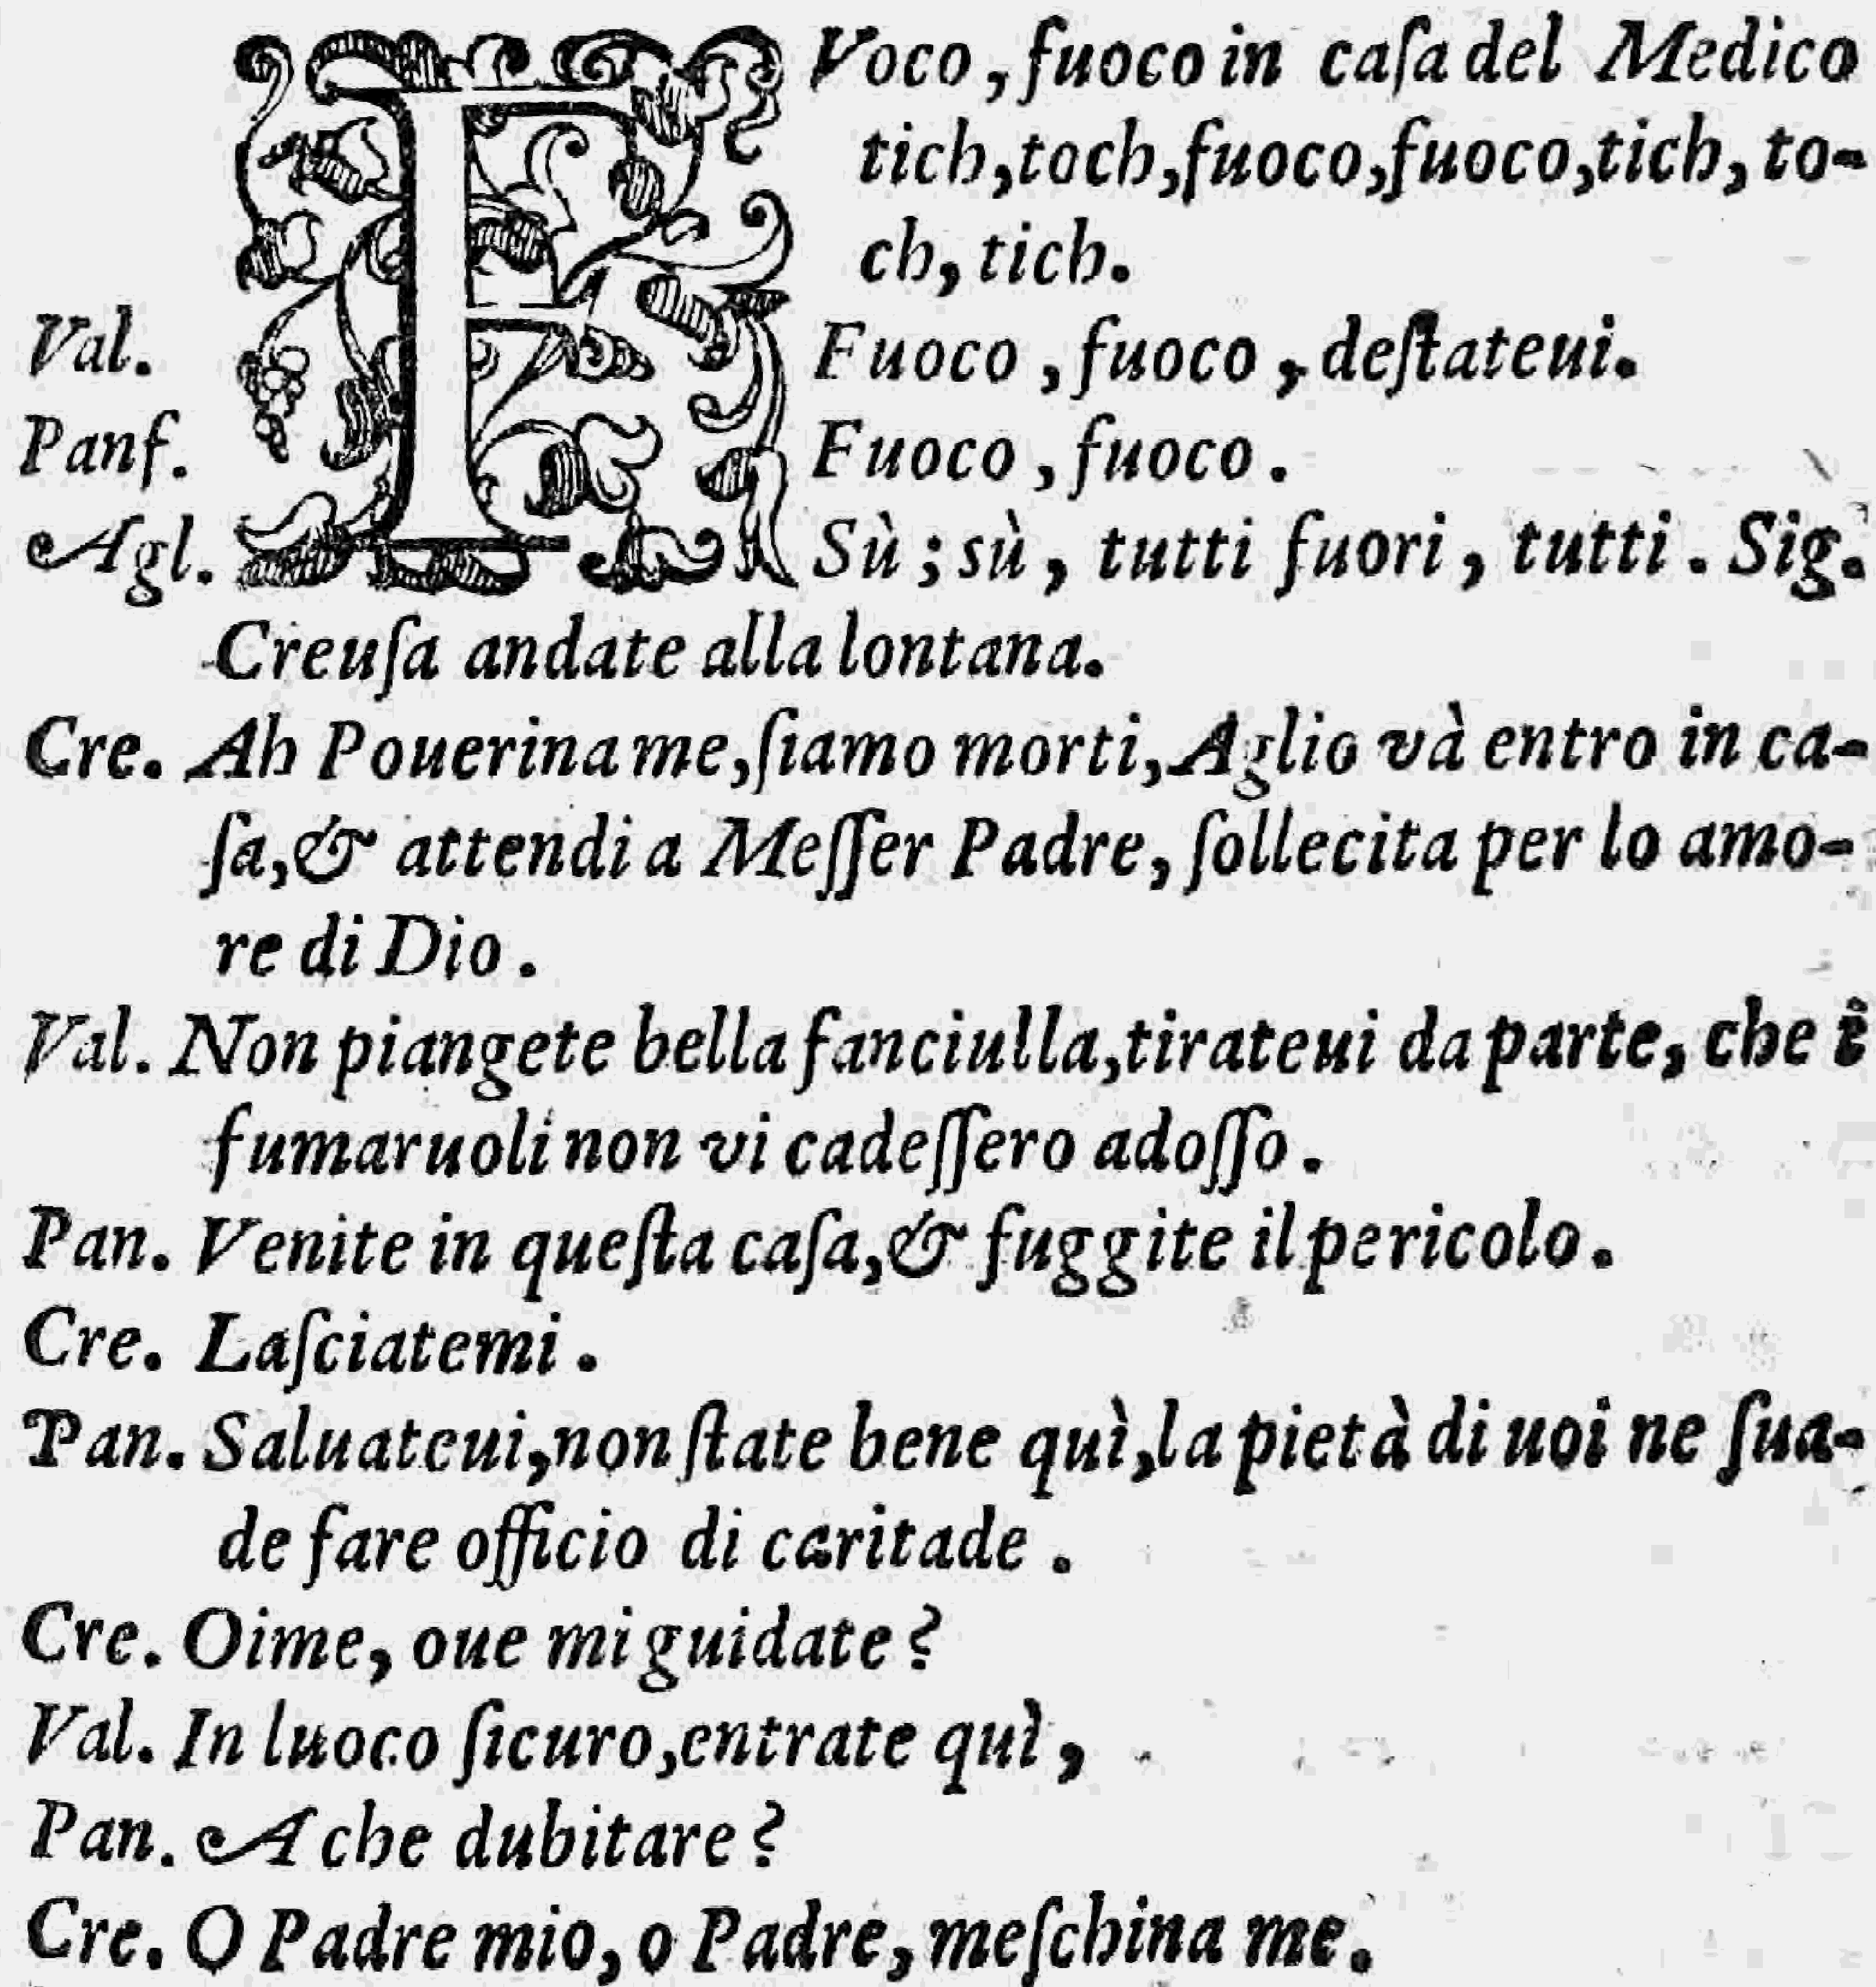 FVoco, fuoco in caſa del Medico
tich, toch, fuoco, fuoco, tich, to-
ch, tich.
Val. Fuoco, fuoco, deſtateui.
Panf. Fuoco, fuoco.
Agl. Sù; sù, tutti fuori, tutti. Sig.
Creuſa andate alla lontana.
Cre. Ah Pouerina me, ſiamo morti, Aglio và entro in ca-
ſa, & attendi a Meſſer Padre, ſollecita per lo amo-
re di Dio.
Val. Non piangete bella fanciulla, tirateui da parte, che i
fumaruoli non vi cadeſſero adoſſo.
Pan. Venite in queſta caſa, & fuggite il pericolo.
Cre. Laſciatemi.
Pan. Saluateui, non ſtate bene quì, la pietà di uoi ne ſua-
de fare officio di caritade.
Cre. Oime, oue mi guidate?
Val. In luoco ſicuro, entrate quì,
Pan. A che dubitare?
Cre. O Padre mio, o Padre, meſchina me.